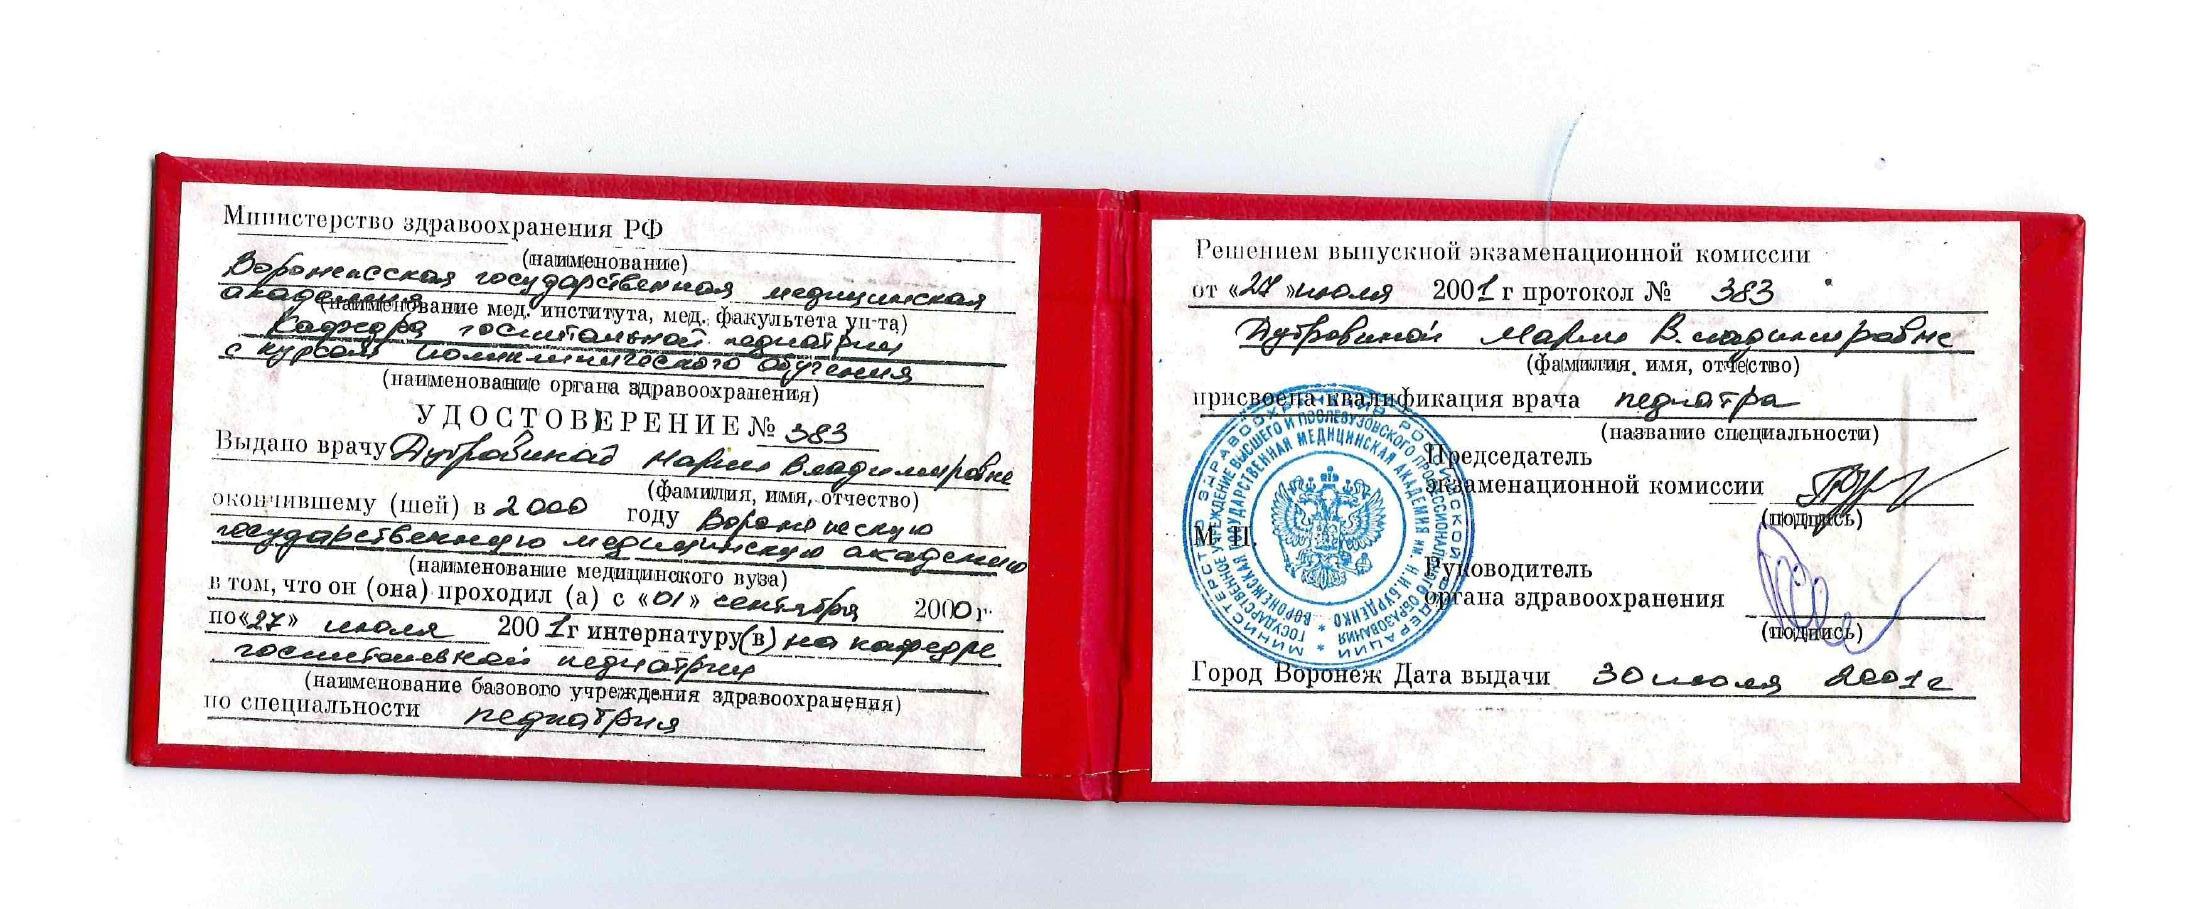 Министерство здравоохранения РФ
(наименование)
Воронежская государственная медицинская
академия
(наименование мед. института, мед. факультета ун-та)
Кафедра госпитальной педиатрии
с курсом поликлинического обучения
(наименование органа здравоохранения)
УДОСТОВЕРЕНИЕ № 383
Выдано врачу Дубровиной Марии Владимировне
(фамилия, имя, отчество)
окончившему (шей) в 2000 году Воронежскую
государственную медицинскую академию
(наименование медицинского вуза)
в том, что он (она) проходил (а) с «01» сентября 2000 г.
по «27» июля 2001 г интернатуру (в) на кафедре
госпитальной педиатрии
(наименование базового учреждения здравоохранения)
по специальности педиатрия
Решением выпускной экзаменационной комиссии
от «27» июля 2001 г протокол № 383
Дубровиной Марии Владимировне
(фамилия, имя, отчество)
присвоена квалификация врача педиатра
(название специальности)
Председатель
экзаменационной комиссии
(подпись)
М. П.
Руководитель
органа здравоохранения
(подпись)
Город Воронеж Дата выдачи 30 июля 2001 г
МИНИСТЕРСТВО ЗДРАВООХРАНЕНИЯ РОССИЙСКОЙ ФЕДЕРАЦИИ
ГОСУДАРСТВЕННОЕ УЧРЕЖДЕНИЕ ВЫСШЕГО И ПОСЛЕВУЗОВСКОГО ПРОФЕССИОНАЛЬНОГО ОБРАЗОВАНИЯ
ВОРОНЕЖСКАЯ ГОСУДАРСТВЕННАЯ МЕДИЦИНСКАЯ АКАДЕМИЯ им. Н.Н. БУРДЕНКО